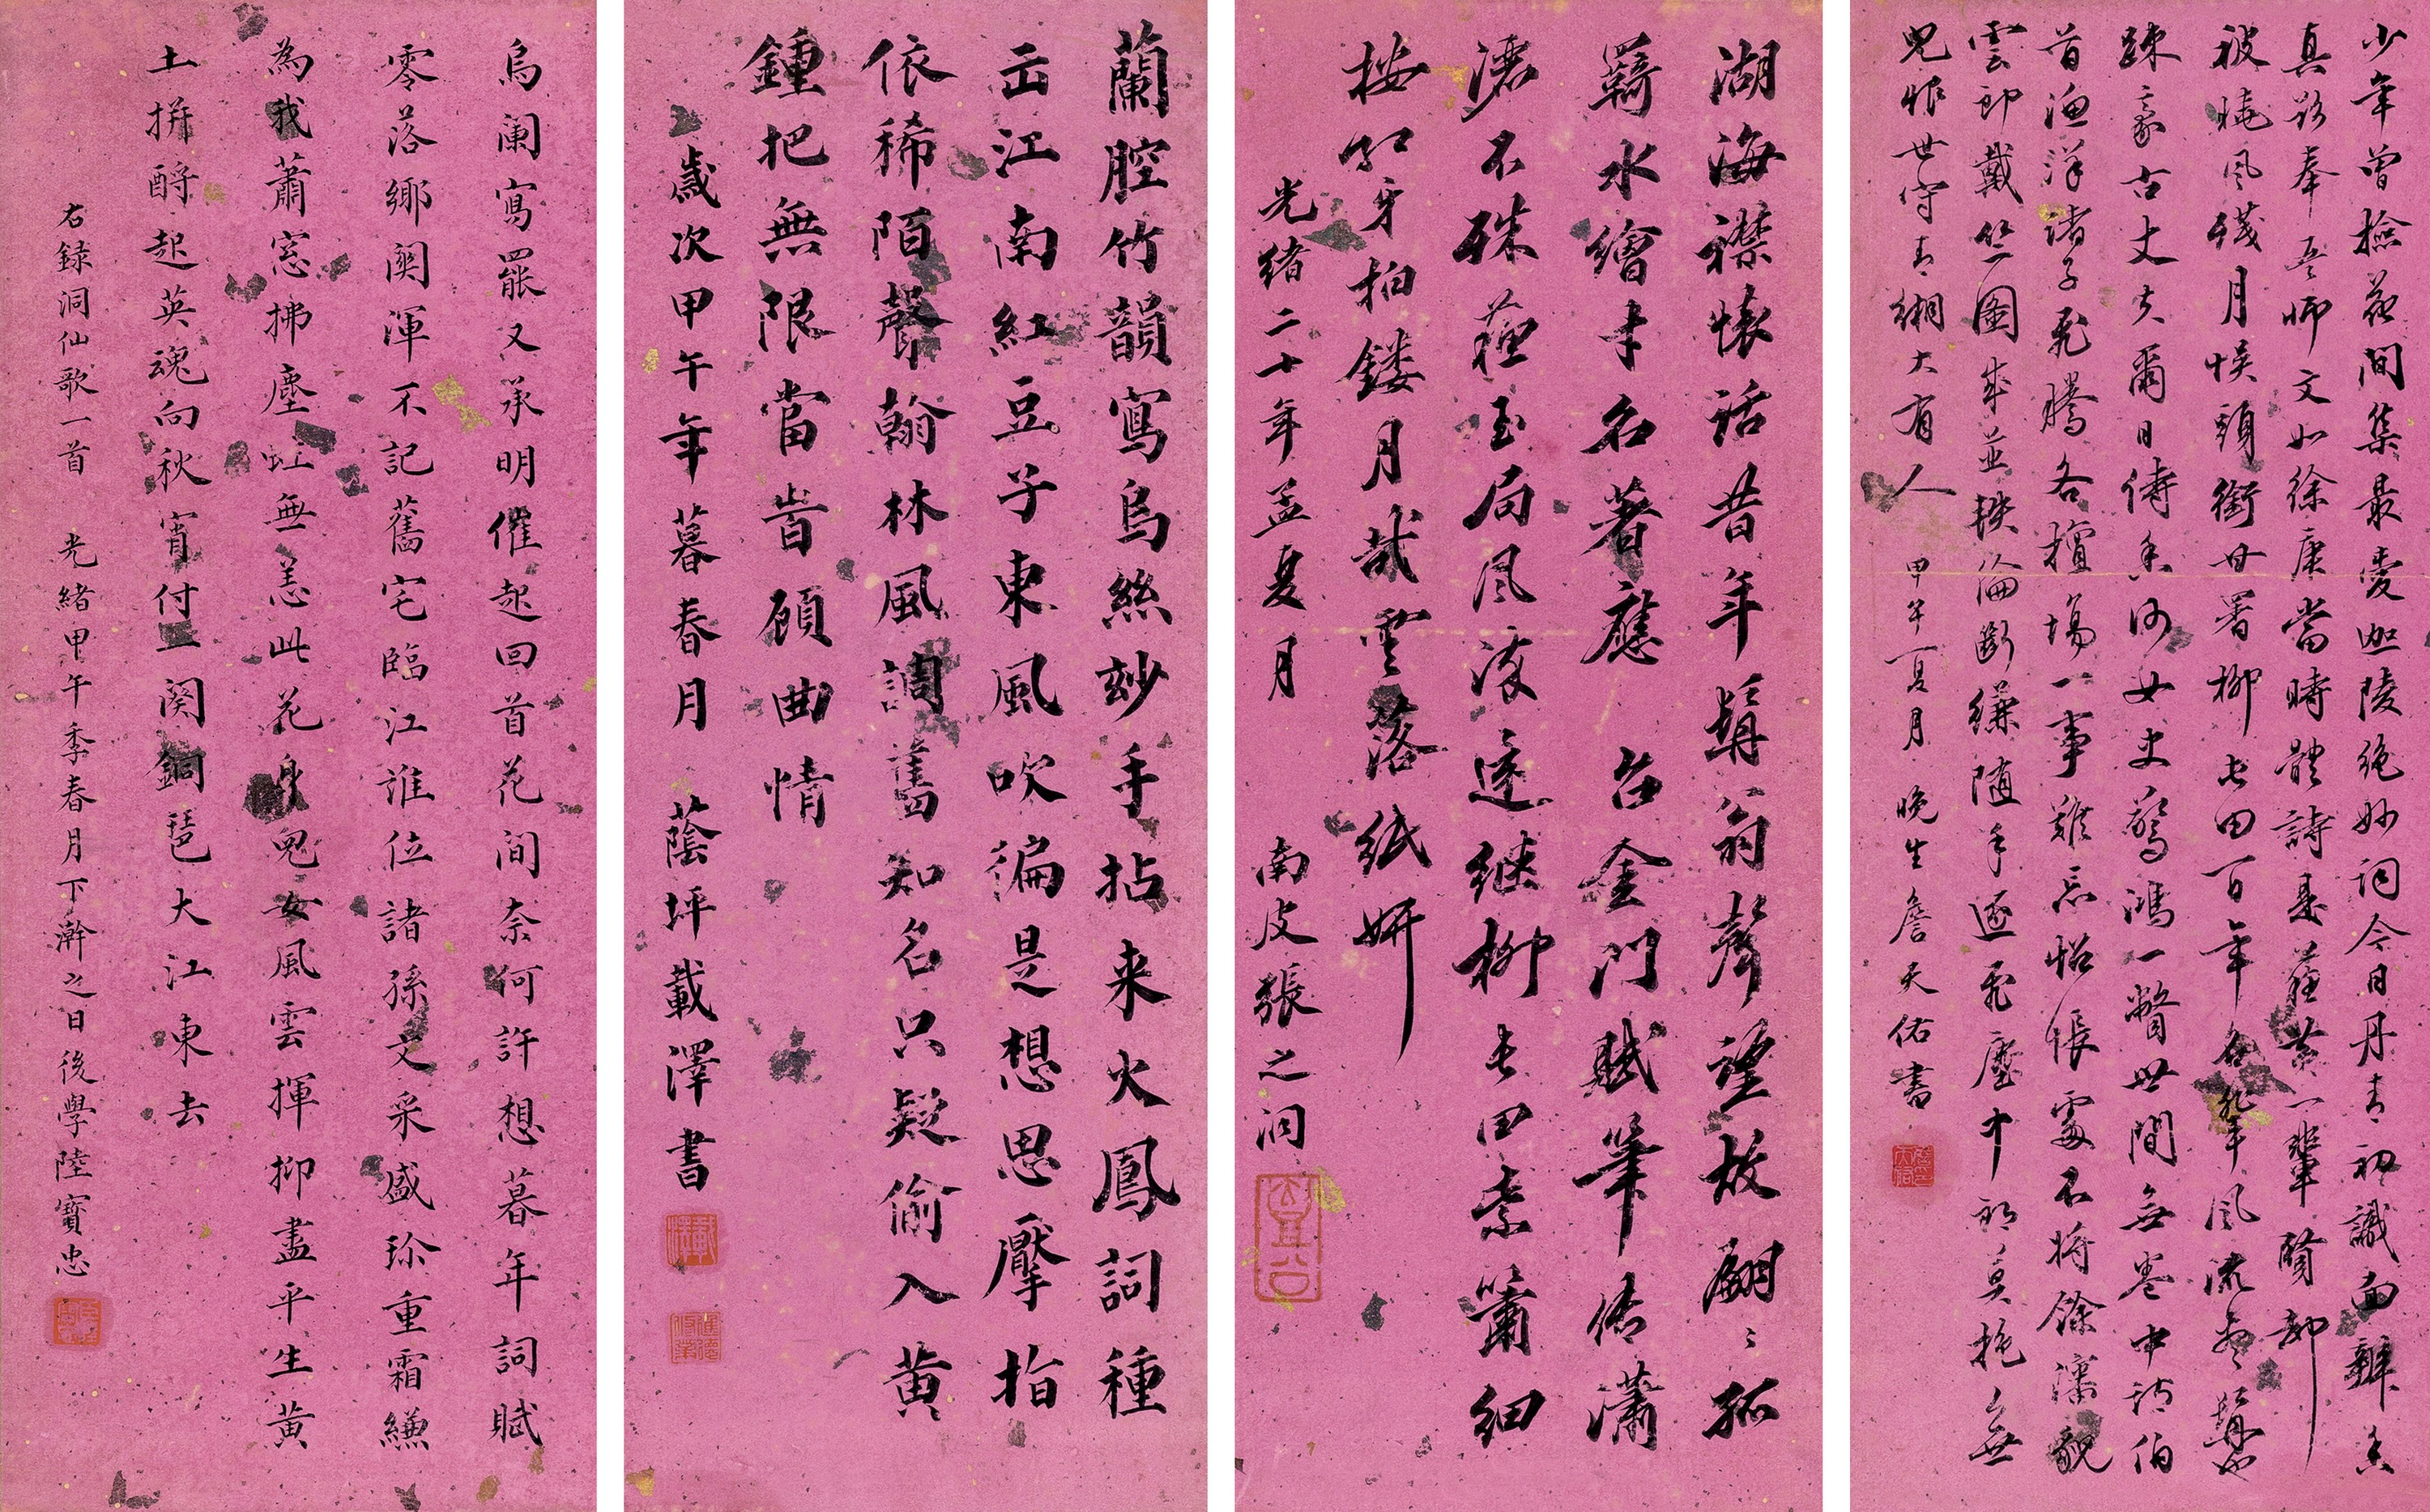 少年曾撿花間集最愛迦陵絕妙詞今日丹青初識面辦香
真欲奉吾師文如徐庾當時體詩是蘇黃一輩賢却
被曉風殘月悞頭銜毋署柳屯田百年名輩風流盡鬢也
踈豪古丈夫爾日侍香河女史驚鴻一瞥世間無卷中諸伯
首漁洋諸子飛騰各擅場一事難忘怊悵處不將餘瀋貌
雲郎戴笠圖成並軼倫斷縑隨手逐飛塵中郎莫抱無
兒恨世守青緗大有人 甲午夏月 晚生詹天佑書
湖海襟懷話昔年鬅翁聲望故翩〻孤
羇水繪才名著應 召金門賦筆傳瀟
灑不殊蘇玉局風流逵継柳屯田素簫細
按紅牙拍鏤月裁雲落紙妍
光緒二十年孟夏月 南皮張之洞
蘭腔竹韻寫烏絲玅手拈来火鳳詞種
出江南紅豆子東風吹徧是想思擪指
依稀陌聲翰林風調舊知名只疑偷入黃
鍾把無限當峕顧曲情
歲次甲午年暮春月 蔭坪載澤書
烏闌寫罷又承明催起回首花間奈何許想暮年詞賦
零落鄉闗渾不記舊宅臨江誰位諸孫文采盛珎重霜縑
為我蕭窓拂塵虹無恙此花身兒女風雲揮抑盡平生黃
土拼酹起英魂向秋宵付一闋銅琶大江東去
右錄洞仙歌一首 光緒甲午季春月下澣之日後學陸寶忠